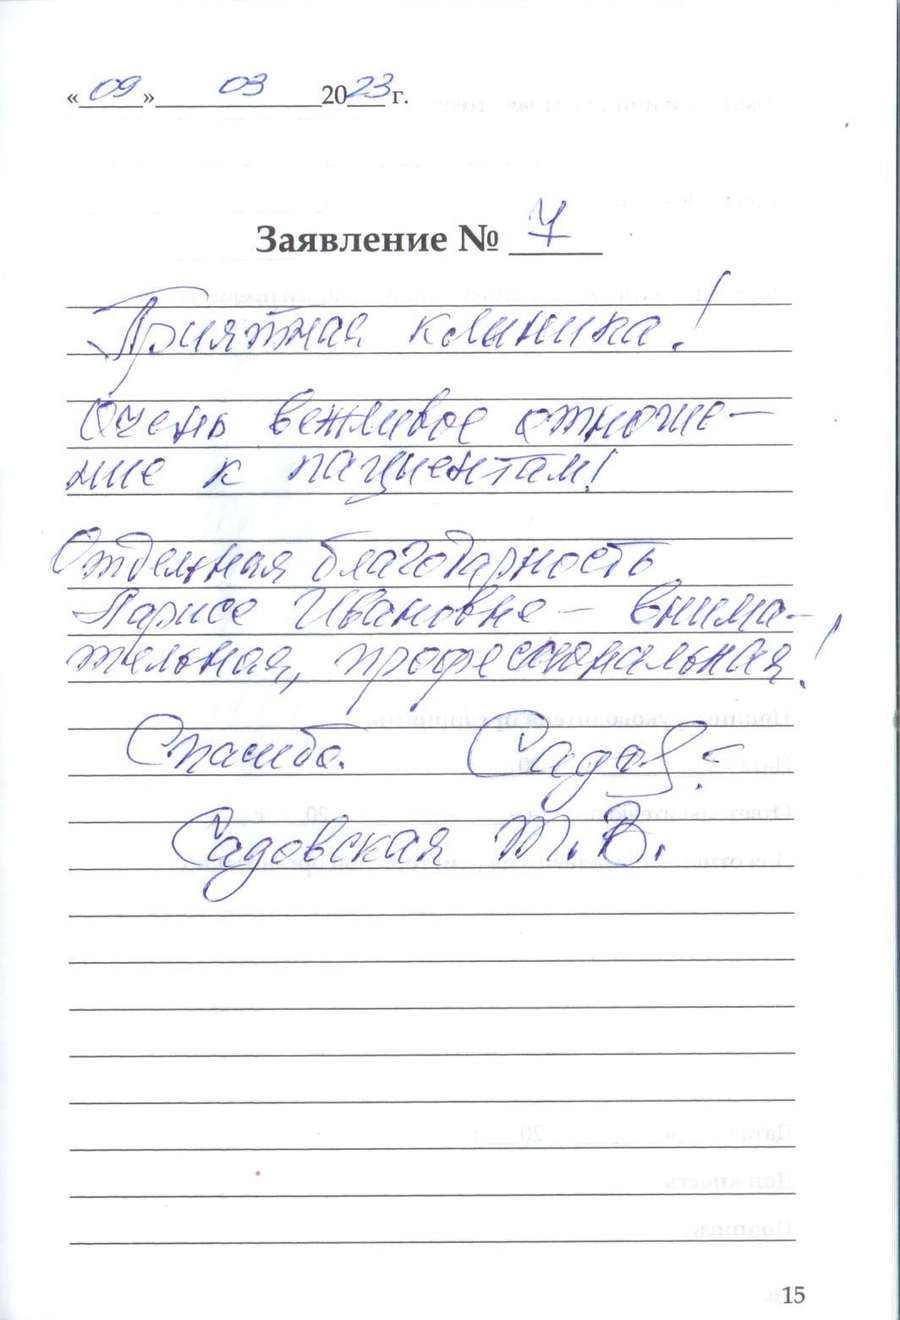 « 09 » 03 2023 г.
Заявление № 7
Приятная клиника!
Очень вежливое отноше-
ние к пациентам!
Отдельная благодарность
Ларисе Ивановне – внима-
тельная, профессиональная!
Спасибо.
Садовская Т.В.
15